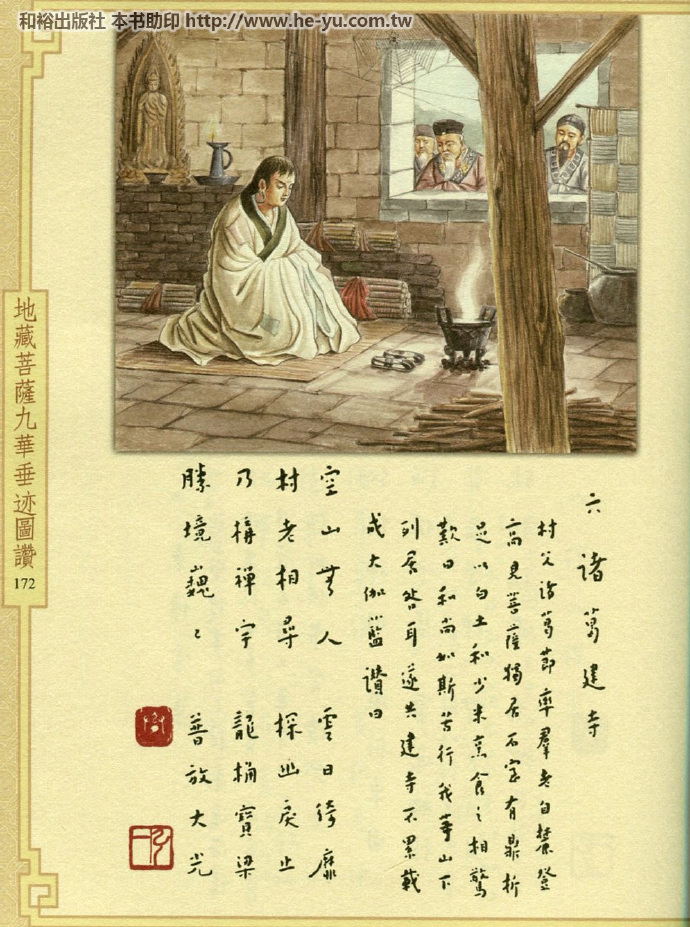 和裕出版社 本书助印 http://www.he-yu.com.tw
地藏菩薩九華垂迹圖讚
172
六 諸葛建寺
村父諸葛節率羣老自麓登
高見菩薩獨居石室有鼎折
足以白土和少米烹食之相驚
歎曰和尚如斯苦行我等山下
列居咎耳遂共建寺不累載
成大伽藍讚曰
空山無人 雲日綺靡
村老相尋 探幽戾止
乃構禪宇 龍桷寶梁
勝境巍巍 普放大光